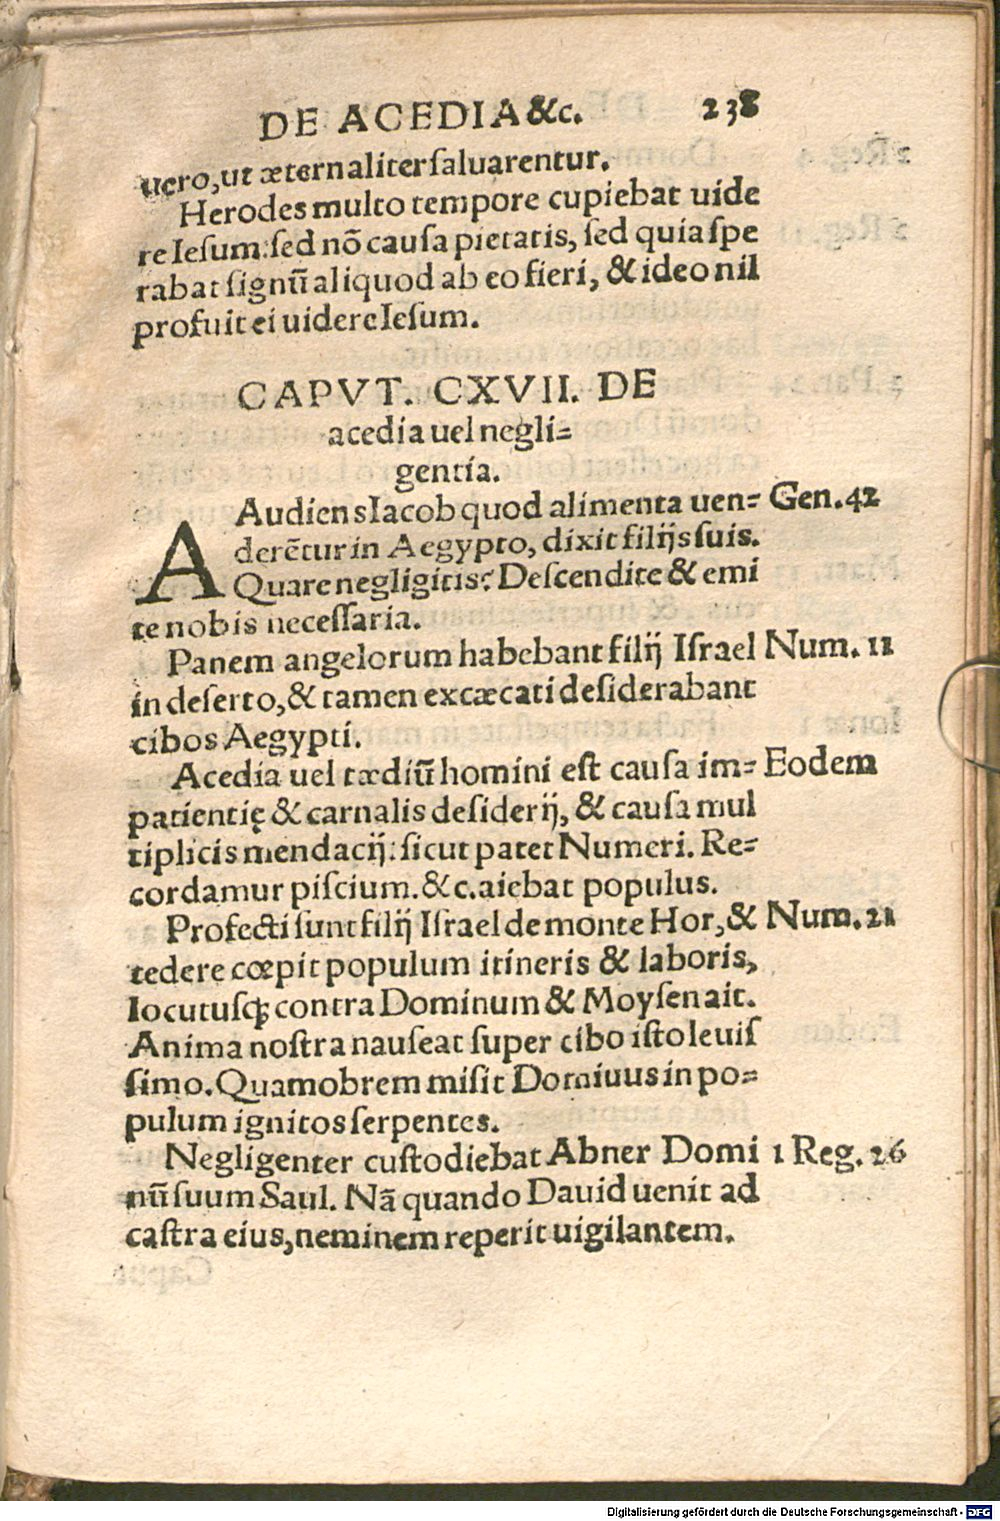 DE ACEDIA &c. 238
uero, ut æternaliter saluarentur.
Herodes multo tempore cupiebat uide
re Iesum: sed nõ causa pietatis, sed quia spe
rabat signũ aliquod ab eo fieri, & ideo nil
profuit ei uidere Iesum.
CAPVT. CXVII. DE
acedia uel negli=
gentia.
Audiens Iacob quod alimenta uen= Gen. 42
A derẽtur in Aegypto, dixit filijs suis.
Quare negligitis? Descendite & emi
te nobis necessaria.
Panem angelorum habebant filij Israel Num. 11
in deserto, & tamen excæcati desiderabant
cibos Aegypti.
Acedia uel tædiũ homini est causa im= Eodem
patientię & carnalis desiderij, & causa mul
tiplicis mendacij: sicut patet Numeri. Re=
cordamur piscium. &c. aiebat populus.
Profecti sunt filij Israel de monte Hor, & Num. 21
tedere cœpit populum itineris & laboris,
locutusq; contra Dominum & Moysen ait.
Anima nostra nauseat super cibo isto leuis
simo. Quamobrem misit Domiuus in po=
pulum ignitos serpentes.
Negligenter custodiebat Abner Domi 1 Reg. 26
nũ suum Saul. Nã quando Dauid uenit ad
castra eius, neminem reperit uigilantem.
Digitalisierung gefördert durch die Deutsche Forschungsgemeinschaft - DFG